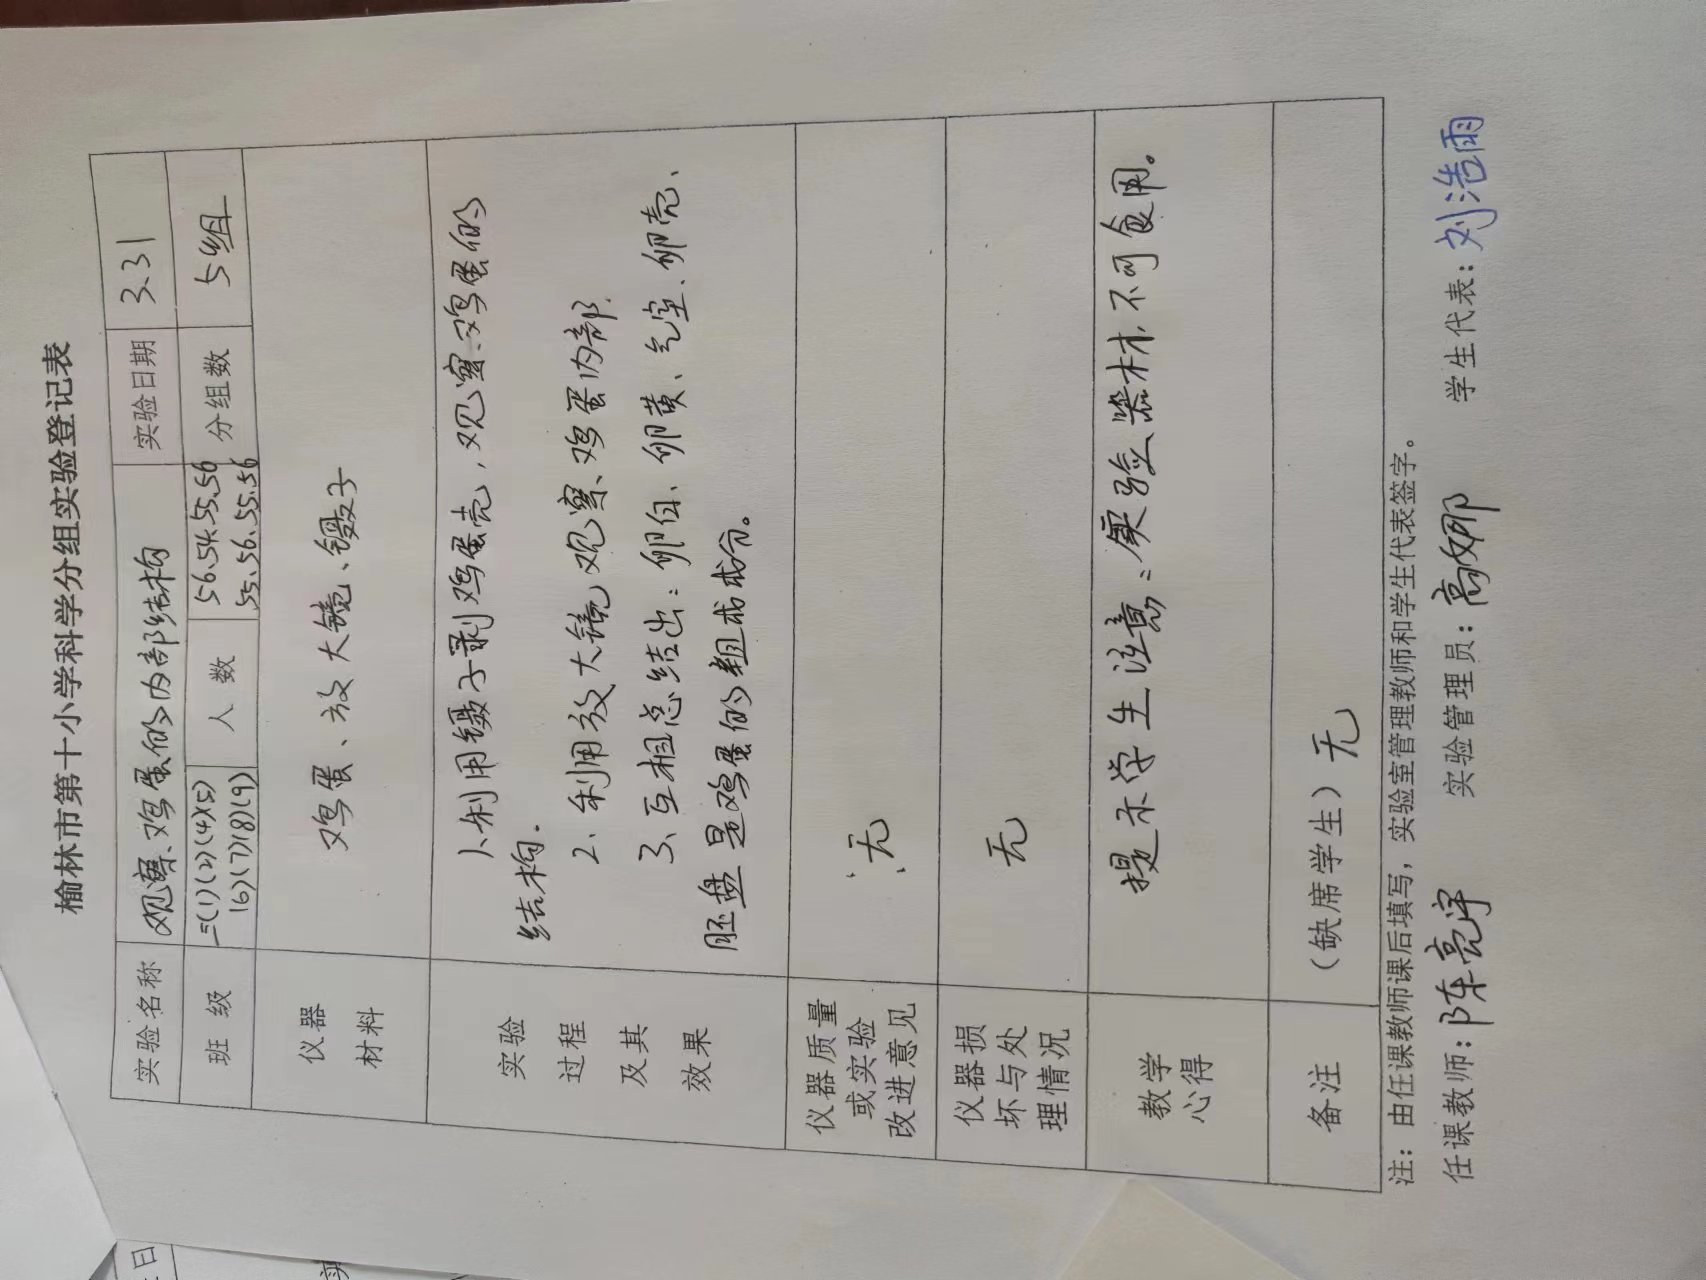 榆林市第十小学科学分组实验登记表
实验名称 观察鸡蛋的内部结构 实验日期 3.31
班 级 三(1)(2)(4)(5) 人 数 56.54.55.56 分组数 5组
(6)(7)(8)(9) 55.56.55.56
仪器 鸡蛋、放大镜、镊子
材料
实验 1、利用镊子剥鸡蛋壳，观察鸡蛋的
结构.
过程 2、利用放大镜观察鸡蛋内部.
及其 3、互相总结出：卵白、卵黄、气室、卵壳、
效果 胚盘是鸡蛋的组成成分。
仪器质量
或实验 无
改进意见
仪器损
坏与处 无
理情况
教学 提示学生注意：实验器材不可食用。
心得
备注 （缺席学生）无
注：由任课教师课后填写，实验室管理教师和学生代表签字。
任课教师：陈亮宇 实验管理员：高娜 学生代表：刘浩雨